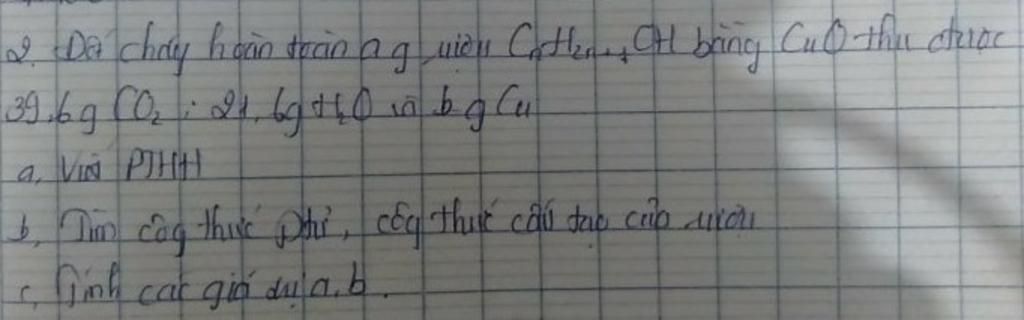 2. Đốt cháy hoàn toàn a g rượu CnH2n+1OH bằng CuO thu được
39,6g CO2 ; 21,6g H2O và b g Cu
a, Viết PTHH
b, Tìm côg thức phtử, côg thức cấu tạo của rượu
c, Tính các giá trị a, b.